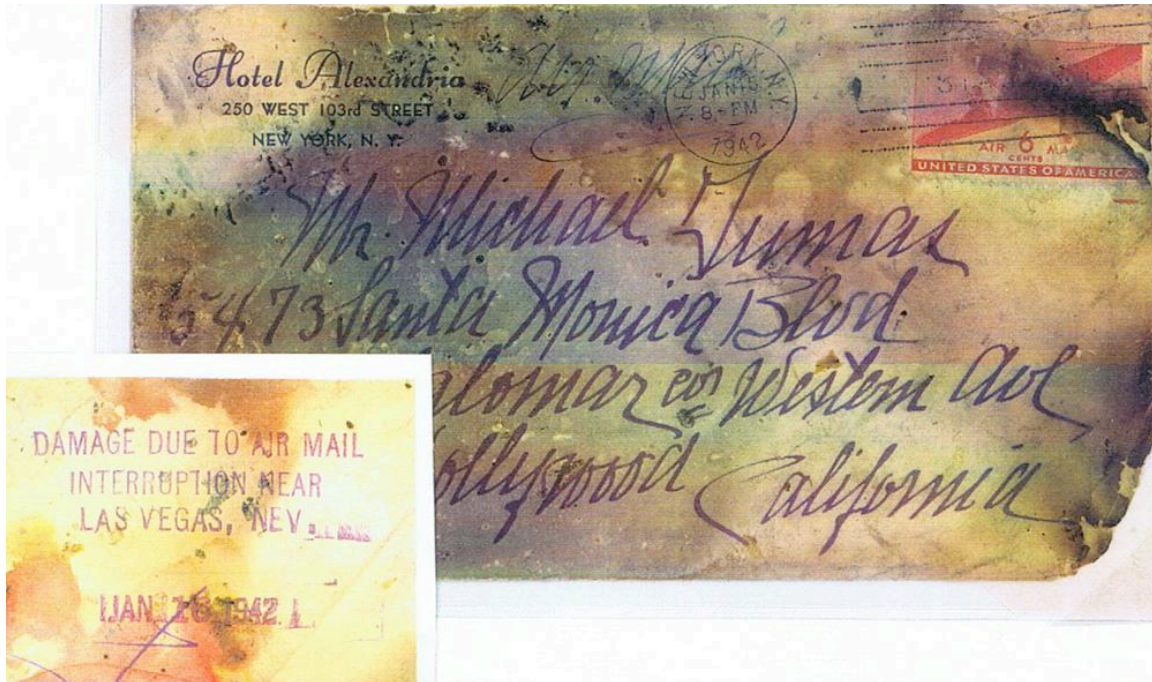 Hotel Alexandria
250 WEST 103rd STREET
NEW YORK, N. Y.
Air Mail
NEW YORK, N.Y.
JAN 15
8-PM
1942
AIR 6 MAIL
CENTS
UNITED STATES OF AMERICA
Mr. Michael Dumas
5473 Santa Monica Blvd
Palomar cor Western Ave
Hollywood California
DAMAGE DUE TO AIR MAIL
INTERRUPTION NEAR
LAS VEGAS, NEV.
JAN 18 1942